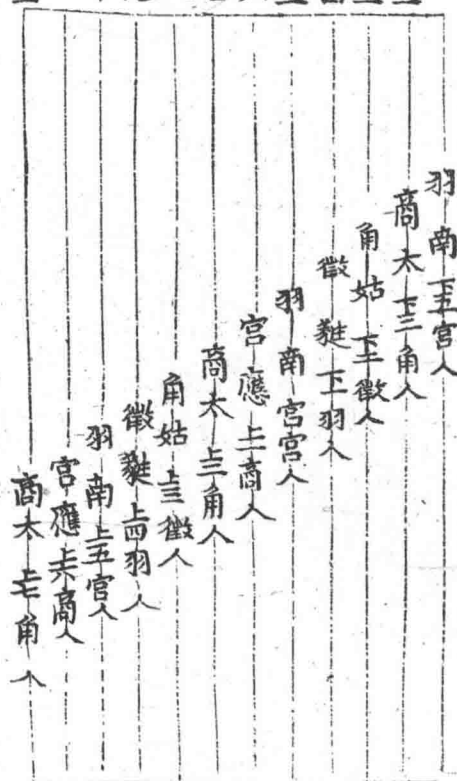 羽南下五宮人
商太下三角人
角姑下二徵人
徵蕤下一羽人
羽南宮宮人
宮應上一商人
商太上二角人
角姑上三徵人
徵蕤上四羽人
羽南上五宮人
宮應上六商人
商太上七角人